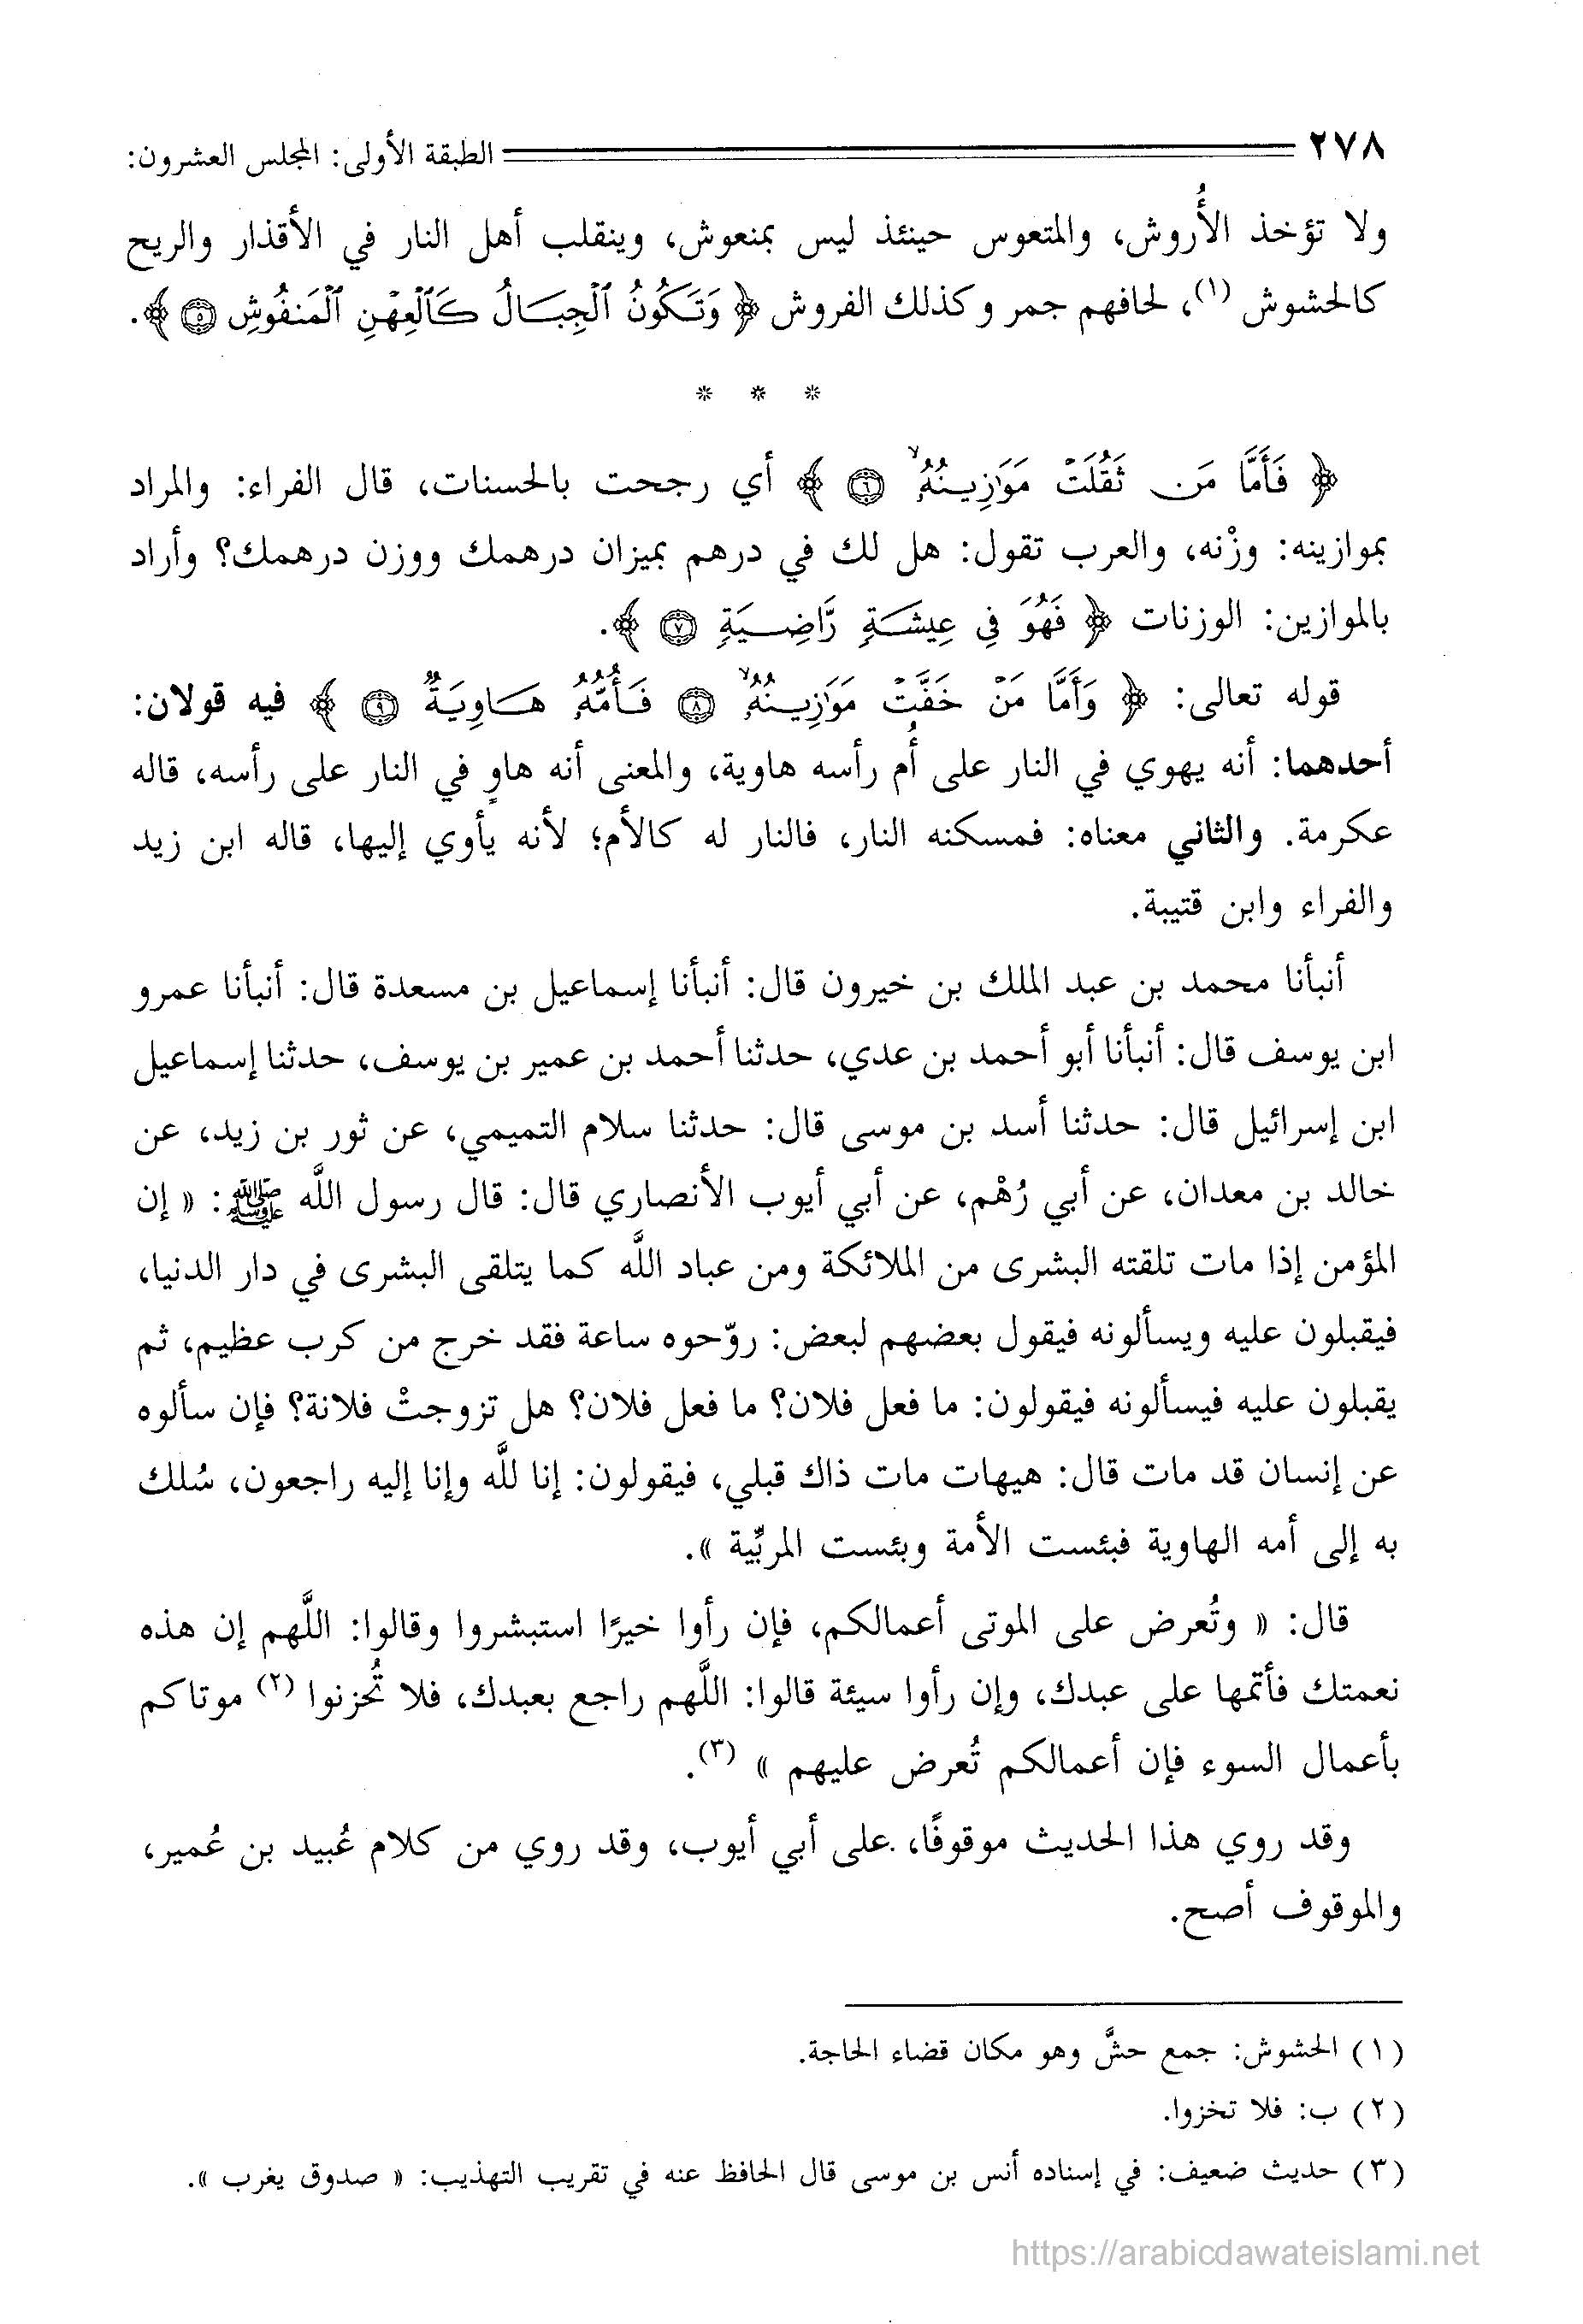 ٢٧٨ الطبقة الأولى: المجلس العشرون:
ولا تؤخذ الأُروش، والمتعوس حينئذ ليس بمنعوش، وينقلب أهل النار في الأقذار والريح
كالحشوش (١)، لحافهم جمر وكذلك الفروش ﴿ وَتَكُونُ ٱلْجِبَالُ كَٱلْعِهْنِ ٱلْمَنفُوشِ ۝٥ ﴾.
* * *
﴿ فَأَمَّا مَن ثَقُلَتْ مَوَٰزِينُهُۥ ۝٦ ﴾ أي رجحت بالحسنات، قال الفراء: والمراد
بموازينه: وزْنه، والعرب تقول: هل لك في درهم بميزان درهمك ووزن درهمك؟ وأراد
بالموازين: الوزنات ﴿ فَهُوَ فِى عِيشَةٍ رَّاضِيَةٍ ۝٧ ﴾.
قوله تعالى: ﴿ وَأَمَّا مَنْ خَفَّتْ مَوَٰزِينُهُۥ ۝٨ فَأُمُّهُۥ هَاوِيَةٌ ۝٩ ﴾ فيه قولان:
أحدهما: أنه يهوي في النار على أُم رأسه هاوية، والمعنى أنه هاوٍ في النار على رأسه، قاله
عكرمة. والثاني معناه: فمسكنه النار، فالنار له كالأم؛ لأنه يأوي إليها، قاله ابن زيد
والفراء وابن قتيبة.
أنبأنا محمد بن عبد الملك بن خيرون قال: أنبأنا إسماعيل بن مسعدة قال: أنبأنا عمرو
ابن يوسف قال: أنبأنا أبو أحمد بن عدي، حدثنا أحمد بن عمير بن يوسف، حدثنا إسماعيل
ابن إسرائيل قال: حدثنا أسد بن موسى قال: حدثنا سلام التميمي، عن ثور بن زيد، عن
خالد بن معدان، عن أبي رُهْم، عن أبي أيوب الأنصاري قال: قال رسول اللَّه ﷺ: « إن
المؤمن إذا مات تلقته البشرى من الملائكة ومن عباد اللَّه كما يتلقى البشرى في دار الدنيا،
فيقبلون عليه ويسألونه فيقول بعضهم لبعض: روّحوه ساعة فقد خرج من كرب عظيم، ثم
يقبلون عليه فيسألونه فيقولون: ما فعل فلان؟ ما فعل فلان؟ هل تزوجتْ فلانة؟ فإن سألوه
عن إنسان قد مات قال: هيهات مات ذاك قبلي، فيقولون: إنا للَّه وإنا إليه راجعون، سُلك
به إلى أمه الهاوية فبئست الأمة وبئست المربِّية ».
قال: « وتُعرض على الموتى أعمالكم، فإن رأوا خيرًا استبشروا وقالوا: اللَّهم إن هذه
نعمتك فأتمها على عبدك، وإن رأوا سيئة قالوا: اللَّهم راجع بعبدك، فلا تُحزنوا (٢) موتاكم
بأعمال السوء فإن أعمالكم تُعرض عليهم » (٣).
وقد روي هذا الحديث موقوفًا، على أبي أيوب، وقد روي من كلام عُبيد بن عُمير،
والموقوف أصح.
(١) الحشوش: جمع حشَّ وهو مكان قضاء الحاجة.
(٢) ب: فلا تخزوا.
(٣) حديث ضعيف: في إسناده أنس بن موسى قال الحافظ عنه في تقريب التهذيب: « صدوق يغرب ».
https://arabicdawateislami.net